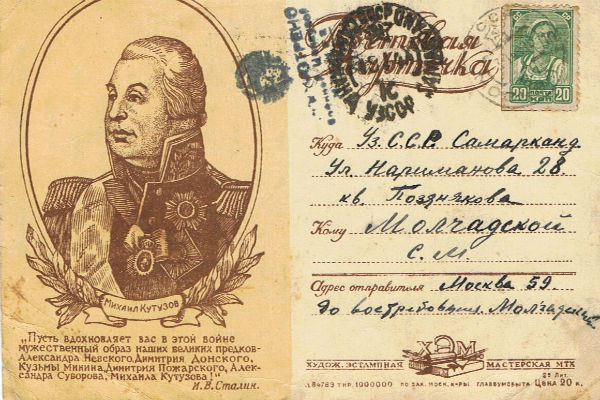 МИХАИЛ КУТУЗОВ
„Пусть вдохновляет вас в этой войне
мужественный образ наших великих предков-
Александра Невского, Димитрия Донского,
Кузьмы Минина, Димитрия Пожарского, Алек-
сандра Суворова, Михаила Кутузова!"
И. В. Сталин.
Почтовая
Карточка
УЗССР
20 20
Куда Уз. С.С.Р. Самарканд
Ул. Нариманова 28.
кв. Позднякова
Кому Молчадской
С. М.
Адрес отправителя Москва 59
До востребования Молчадский
ХЭМ
ХУДОЖ. ЭСТАМПНАЯ МАСТЕРСКАЯ МТХ
ТИР. 1000000 ПО ЗАК. МОСК. К-РЫ ГЛАВБУМСБЫТА
25 Лит. Цена 20 к.